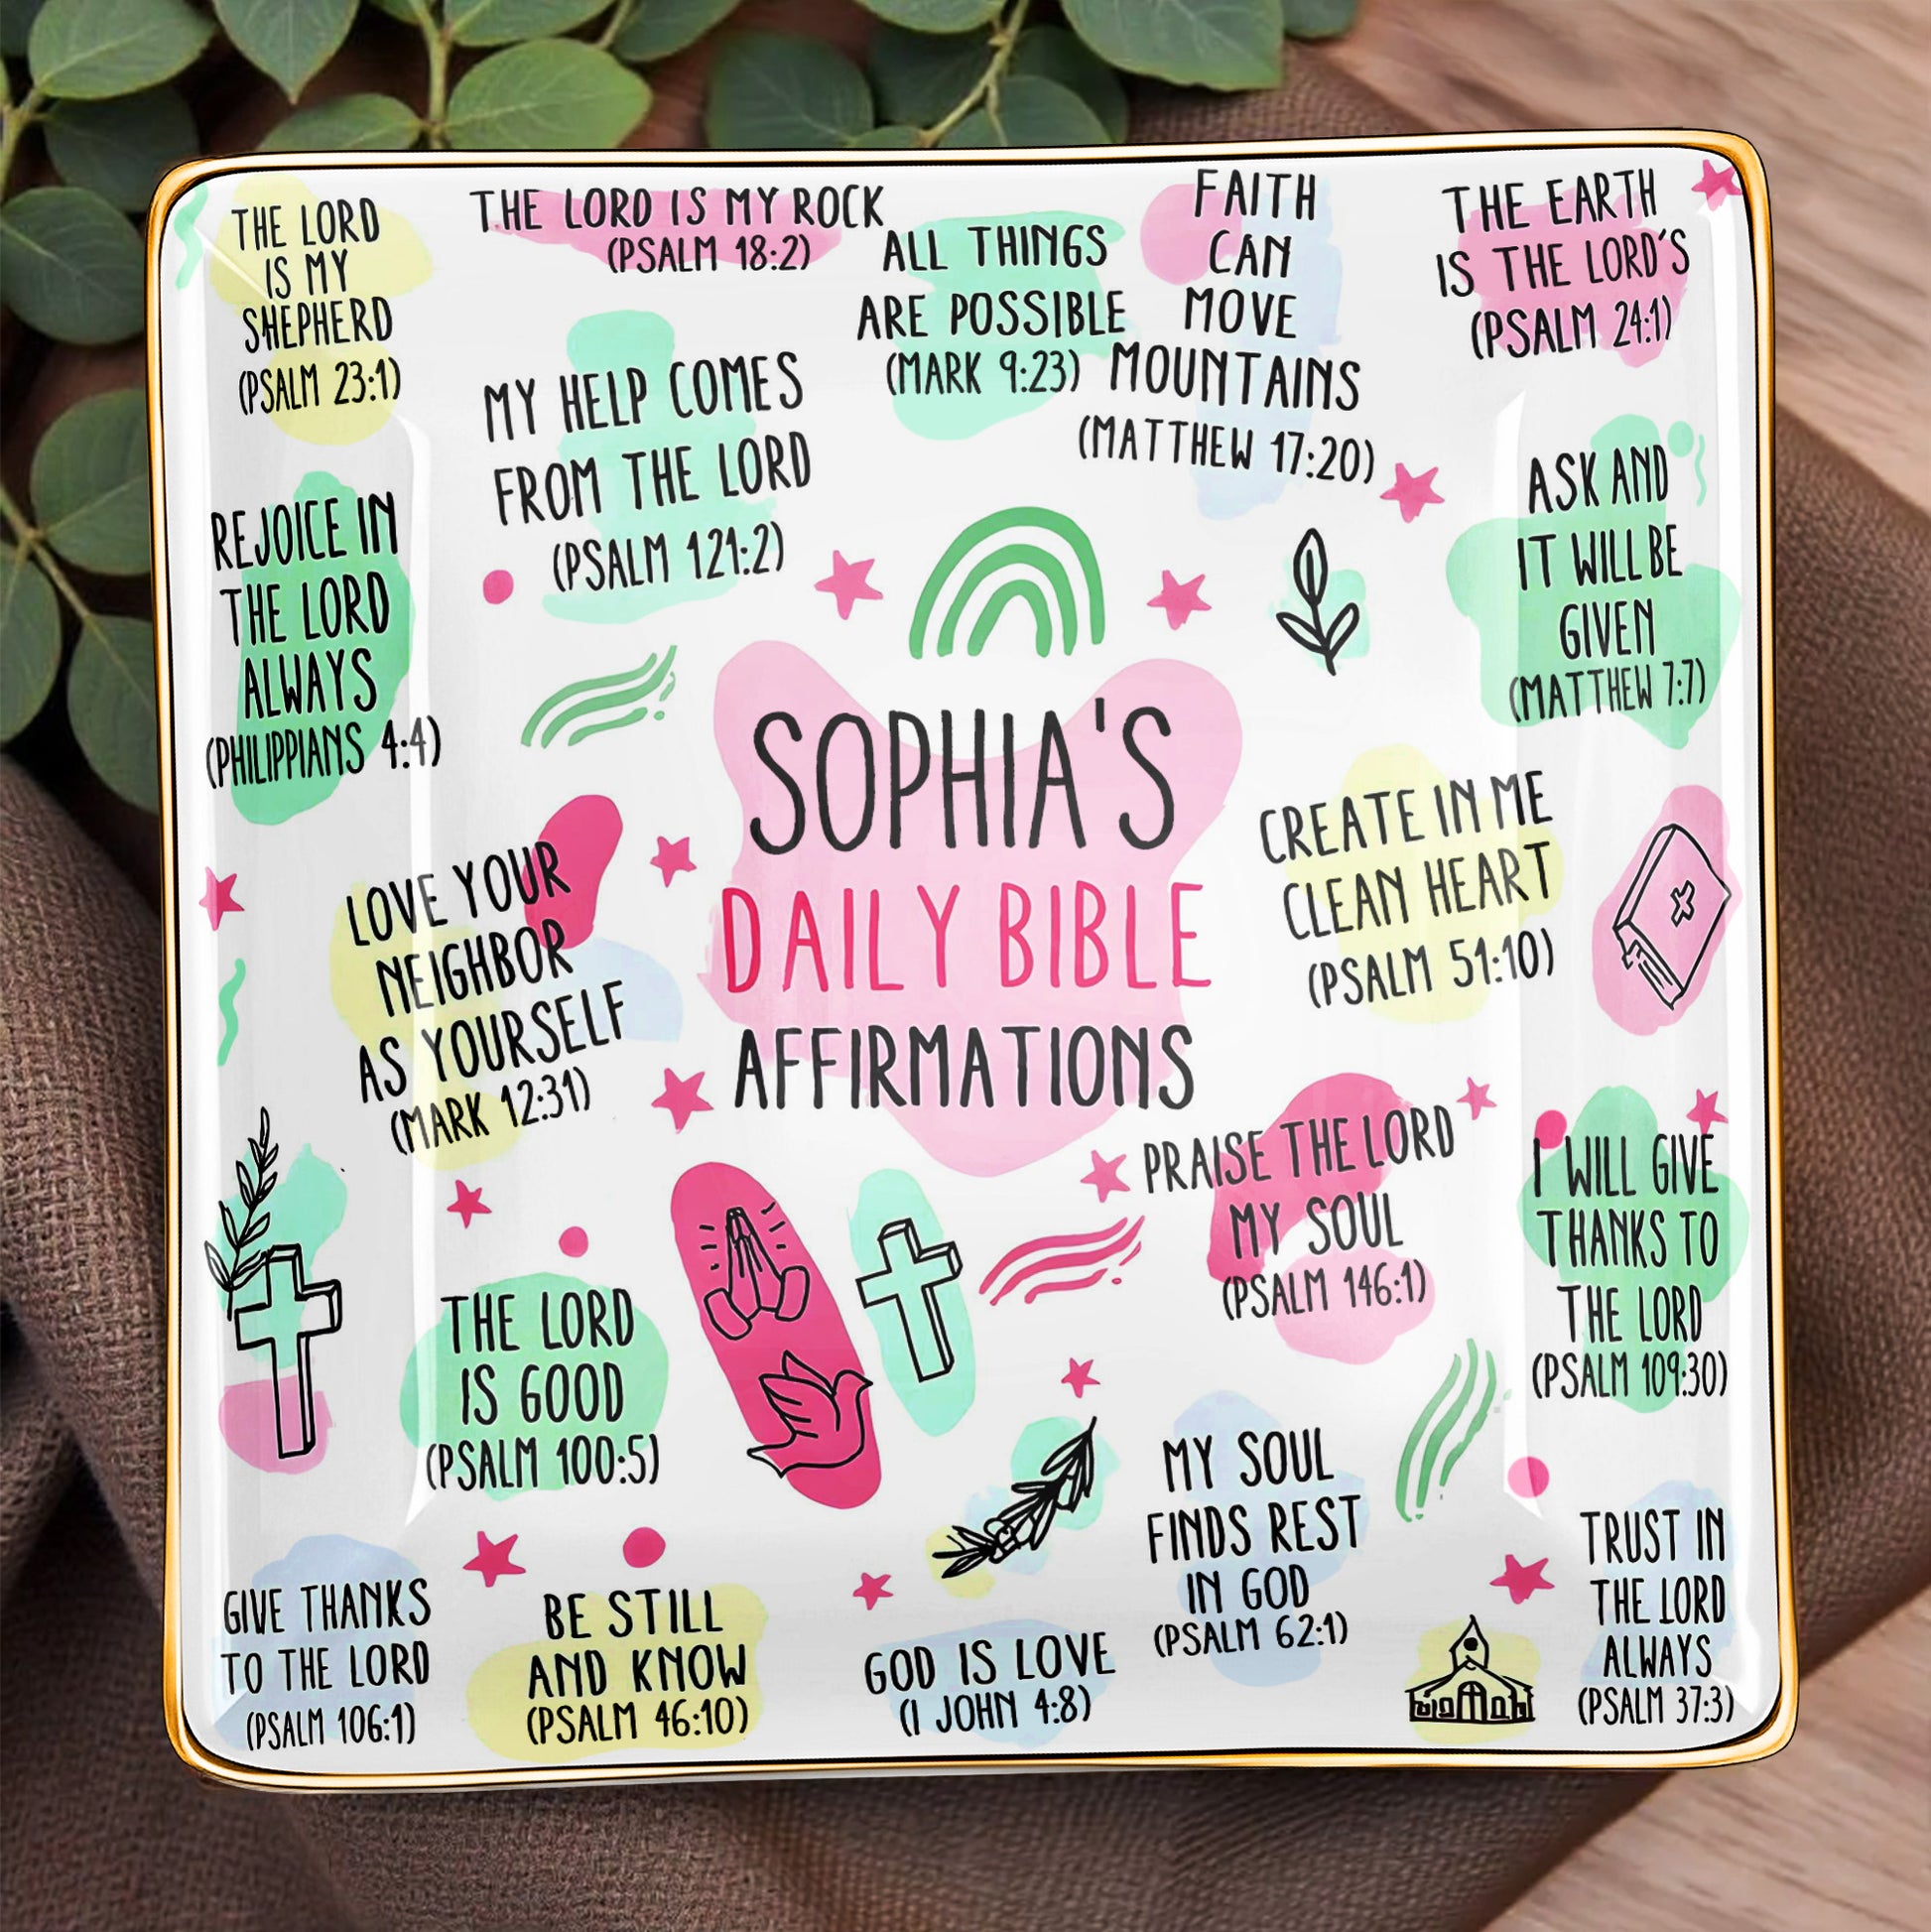 THE LORD
IS MY
SHEPHERD
(PSALM 23:1)
THE LORD IS MY ROCK
(PSALM 18:2)
ALL THINGS
ARE POSSIBLE
(MARK 9:23)
FAITH
CAN
MOVE
MOUNTAINS
(MATTHEW 17:20)
THE EARTH
IS THE LORD'S
(PSALM 24:1)
MY HELP COMES
FROM THE LORD
(PSALM 121:2)
REJOICE IN
THE LORD
ALWAYS
(PHILIPPIANS 4:4)
ASK AND
IT WILL BE
GIVEN
(MATTHEW 7:7)
SOPHIA'S
DAILY BIBLE
AFFIRMATIONS
LOVE YOUR
NEIGHBOR
AS YOURSELF
(MARK 12:31)
CREATE IN ME
CLEAN HEART
(PSALM 51:10)
PRAISE THE LORD
MY SOUL
(PSALM 146:1)
I WILL GIVE
THANKS TO
THE LORD
(PSALM 109:30)
THE LORD
IS GOOD
(PSALM 100:5)
MY SOUL
FINDS REST
IN GOD
(PSALM 62:1)
GIVE THANKS
TO THE LORD
(PSALM 106:1)
BE STILL
AND KNOW
(PSALM 46:10)
GOD IS LOVE
(I JOHN 4:8)
TRUST IN
THE LORD
ALWAYS
(PSALM 37:3)